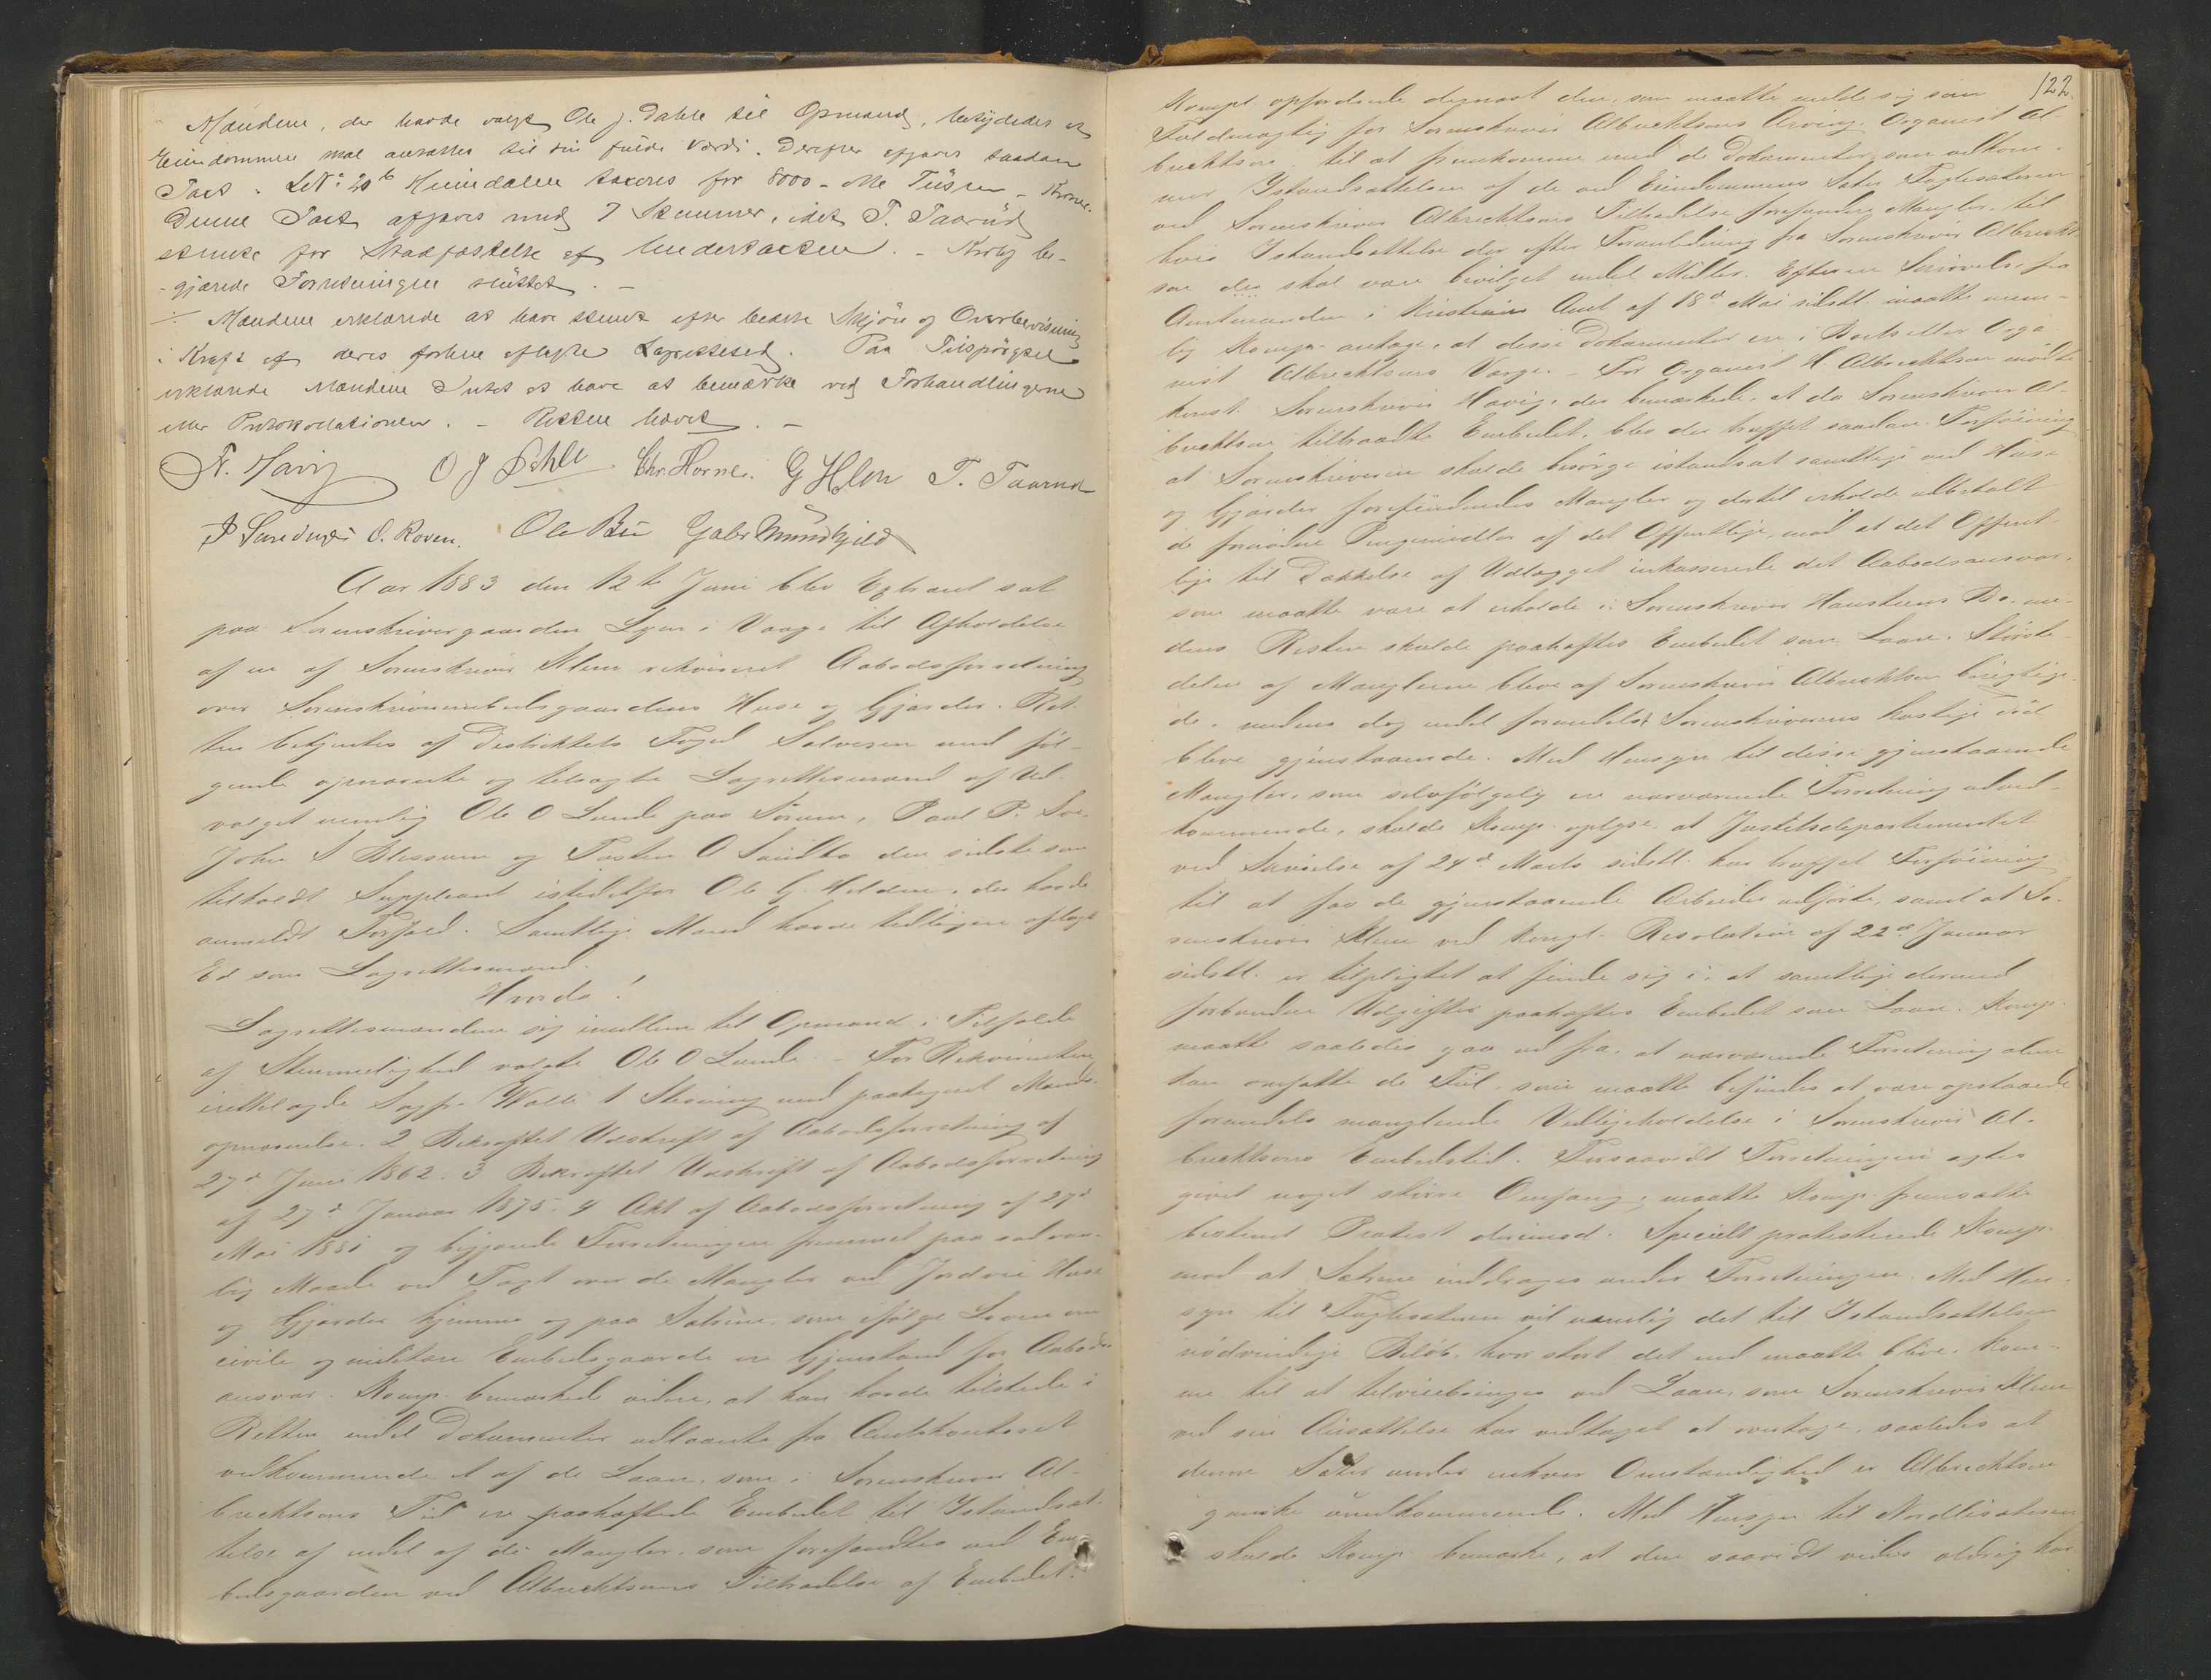 Mændene, der havde valgt Ole J. Dahle til Opmand, betydedes at
Eiendommene skal ansættes til sin fulde Værdi. Derefter afgaves saadan
Taxt. LNo 20b Heimdalen taxeres for 8000 - otte Tusen - Kroner.
Denne Taxt afgaves med 7 Stemmer, idet T. Taarud
stemte for Stadfæstelse af Undertaxten. - Krby be-
gjærede Forretningen sluttet. -
Mændene erklærede at have stemt efter bedste Skjøn og Overbevisning
i Kraft af deres forhen aflagte Lagrettesed. Paa Tilspørgsel
erklærede Mændene Intet at have at bemærke ved Forhandlingerne
eller Protokollationen. - Retten hævet. -
O J Dahle Chr. Horne. T. Taarud
O. Roven. Ole
Aar 1883 den 12te Juni blev Extraret sat
paa Sorenskrivergaarden Syn i Vaage til Afholdelse
af en af Sorenskriver Klem rekvireret Aabodsforretning
over Sorenskriverembedsgaardens Huse og Gjærder. Ret-
ten betjentes af Distriktets Foged Salvesen med føl-
gende opnævnte og tilsagte Lagrettesmænd af Ud-
valget nemlig Ole O Lunde paa Sørum, Paul P. Sve,
John S Blessum og Tosten O Sandbo den sidste som
tilkaldt Suppleant istedetfor Ole G. Holden, der havde
anmeldt Forfald. Samtlige Mænd havde tidligere aflagt
Ed som Lagrettesmænd.
Hvorda!
Lagrettesmændene sig imellem til Opmand i Tilfælde
af Stemmelighed valgte Ole O Lunde. - For Rekvirenten
irettelagde Sagf. Walle 1 Stevning med paategnet Mænds-
opnævnelse. 2 Bekræftet Udskrift af Aabodsforretning af
27d Juni 1862. 3 Bekræftet Udskrift af Aabodsforretning
af 27d Januar 1875. 4 Akt af Aabodsforretning af 27d
Mai 1881 og begjærede Forretningen fremmet paa sedvan-
lig Maade ved Taxt over de Mangler ved Jordvei Huse
og Gjærder hjemme og paa Sætrene, som ifølge Loven om
civile og militære Embedsgaarde er Gjenstand for Aabods-
ansvar. Komp. bemærked videre, at han havde tilstede i
Retten endel Dokumenter udlaante fra Amtskontoret
vedkommende 1 af de Laan, som i Sorenskriver Al-
brechtsons Tid er paahæftede Embedet til Istandsæt-
telse af endel af de Mangler, som forefandtes ved Em-
bedsgaarden ved Albrechtsons Tiltrædelse af Embedet.
122.
Kompt. opfordrede dernæst den, som maatte melde sig som
Fuldmægtig for Sorenskriver Albrechtsons Arving, Organist Al-
brechtson, til at fremkomme med de Dokumenter, som vedkom-
mer Istandsættelsen af de ved Eiendommens Sæter Faglesæteren
ved Sorenskriver Albrechtsons Tiltrædelse forefundne Mangler, til
hvis Istandsættelse der efter Foranledning fra Sorenskriver Albrecht-
son der skal være bevilget endel Midler. Efter en Skrivelse fra
Amtmanden i Kristians Amt af 18d Mai sidstl. maatte nem-
lig Komp. antage, at disse Dokumenter er i Boets eller Orga-
nist Albrechtsons Værge. - For Organist H Albrechtson mødte
konst. Sorenskriver Havig, der bemærkede, at da Sorenskriver Al-
brechtson tiltraadte Embedet, blev der truffet saadan Forføining
at Sorenskriveren skulde besørge istandsat samtlige ved Huse
og Gjærder forefindendes Mangler og dertil erholde udbetalt
de fornødne Pengemidler af det Offentlige, mod at det Offent-
lige til Dækkelse af Udlægget inkasserede det Aabodsansvar,
som maatte være at erholde i Sorenskriver Hanstens Bo, me-
dens Resten skulde paahæftes Embedet som Laan. Største-
delen af Manglerne bleve af Sorenskriver Albrechtson berigtige-
de, medens dog endel formedelst Sorenskriverens hastige Død
bleve gjenstaaende. Med Hensyn til disse gjenstaaende
Mangler, som selvfølgelig er nærværende Forretning uved-
kommende, skulde Komp. oplyse, at Justitsdepartementet
ved Skrivelse af 24d Marts sidstl. har truffet Forføining
til at faa de gjenstaaende Arbeider udførte, samt at So-
renskriver Klem ved kongl. Resolution af 22d Januar
sidstl. er tilpligtet at finde sig i, at samtlige dermed
forbundne Udgifter paahæftes Embedet som Laan. Komp.
maatte saaledes gaa ud fra, at nærværende Forretning alene
kan omfatte de Feil, som maatte befindes at være opstaaede
formedels manglende Vedligeholdelse i Sorenskriver Al-
brechtsons Embedstid. Forsaavidt Forretningen agtes
givet noget større Omfang, maatte Komp. fremsætte
bestemt Protest derimod. Specielt protesterede Komp.
mod at Sætrene inddrages under Forretningen. Med Hen-
syn til Faglesæteren vil nemlig det til Istandsættelsen
nødvendige Beløb, hvor stort det end maatte blive, kom-
me til at tilveiebringes ved Laan, som Sorenskriver Klem
ved sin Ansættelse har vedtaget at overtage, saaledes at
denne Sæter under enhver Omstændighed er Albrechtson
ganske uvedkommende. Med Hensyn til Nordlisæteren
skulde Komp. bemærke, at den saavidt vides aldrig har